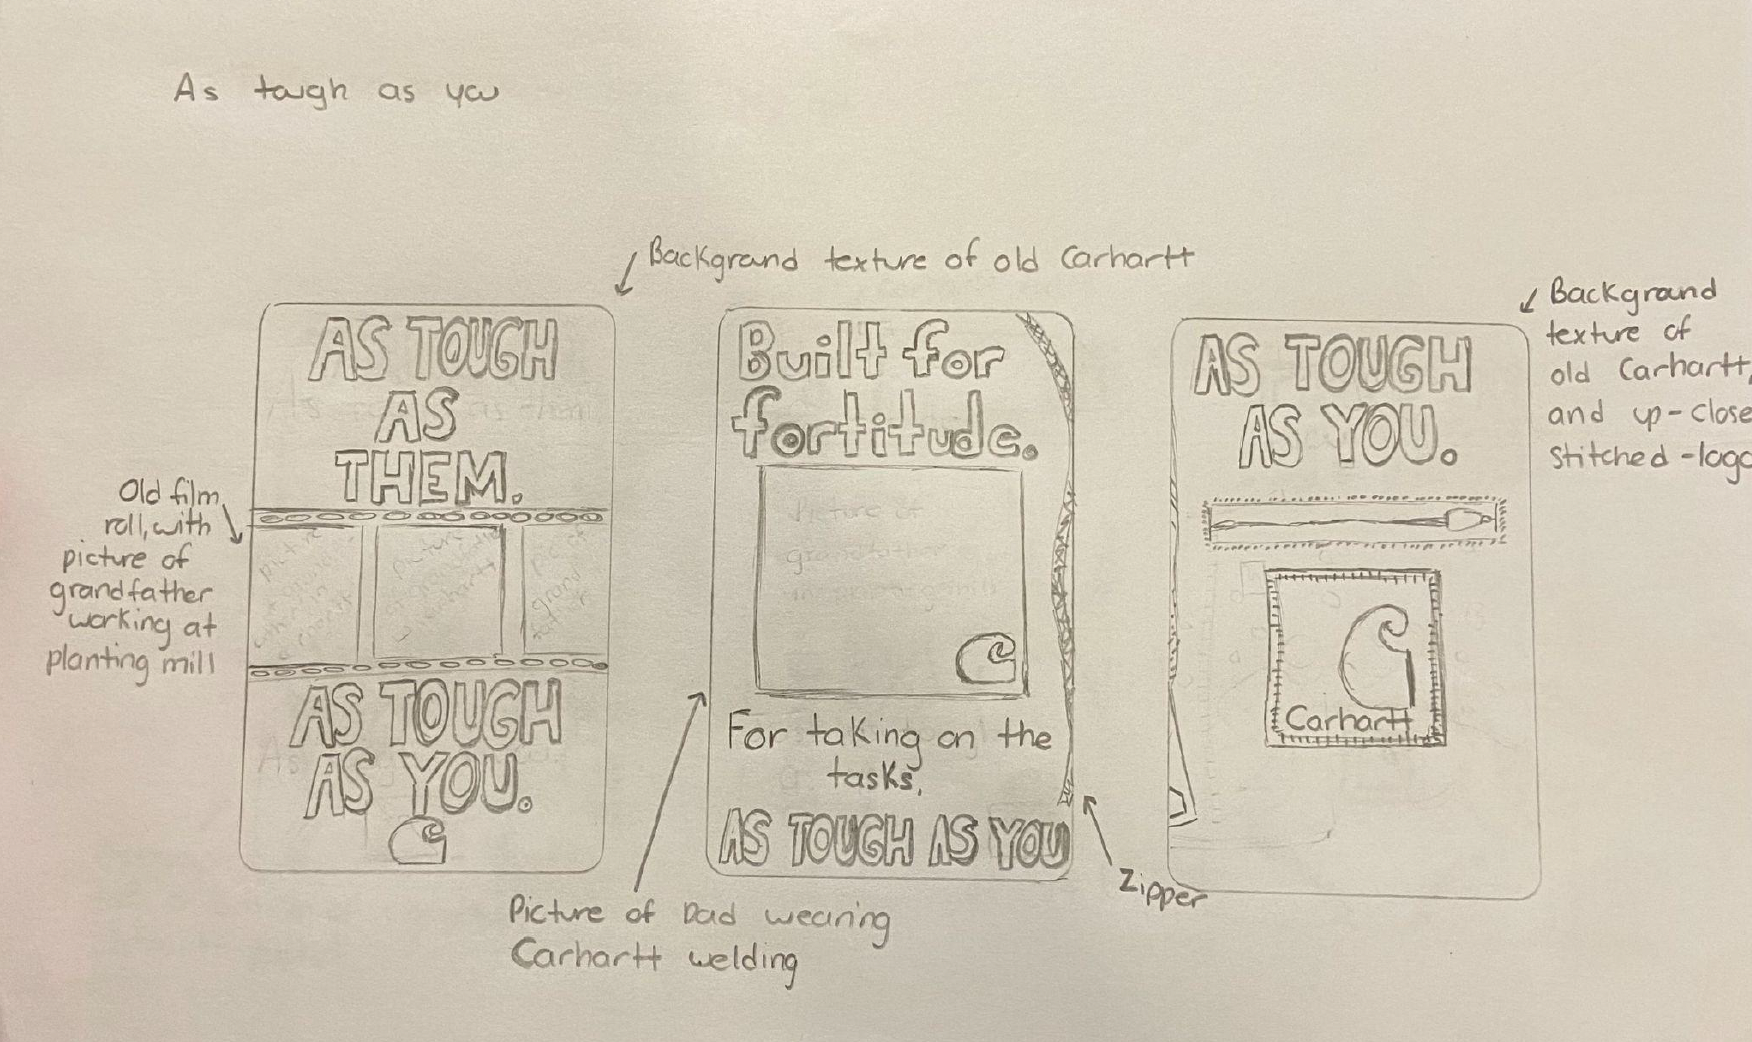 As tough as you
Background texture of old Carhartt
AS TOUGH
AS
THEM.
Old film
roll, with
picture of
grandfather
working at
planting mill
AS TOUGH
AS YOU.
Built for
fortitude.
For taking on the
tasks,
AS TOUGH AS YOU
Picture of Dad wearing
Carhartt welding
Zipper
AS TOUGH
AS YOU.
Carhartt
Background
texture of
old Carhartt,
and up-close
stitched-logo